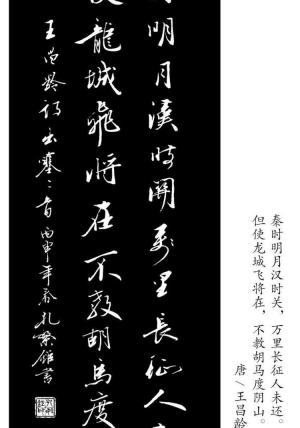 明月汉時關萬里長征人
龍城飛將在不教胡馬度
王昌龄詩出塞二首丙申年春孔繁雄書
秦时明月汉时关，万里长征人未还。
但使龙城飞将在，不教胡马度阴山。
唐／王昌龄